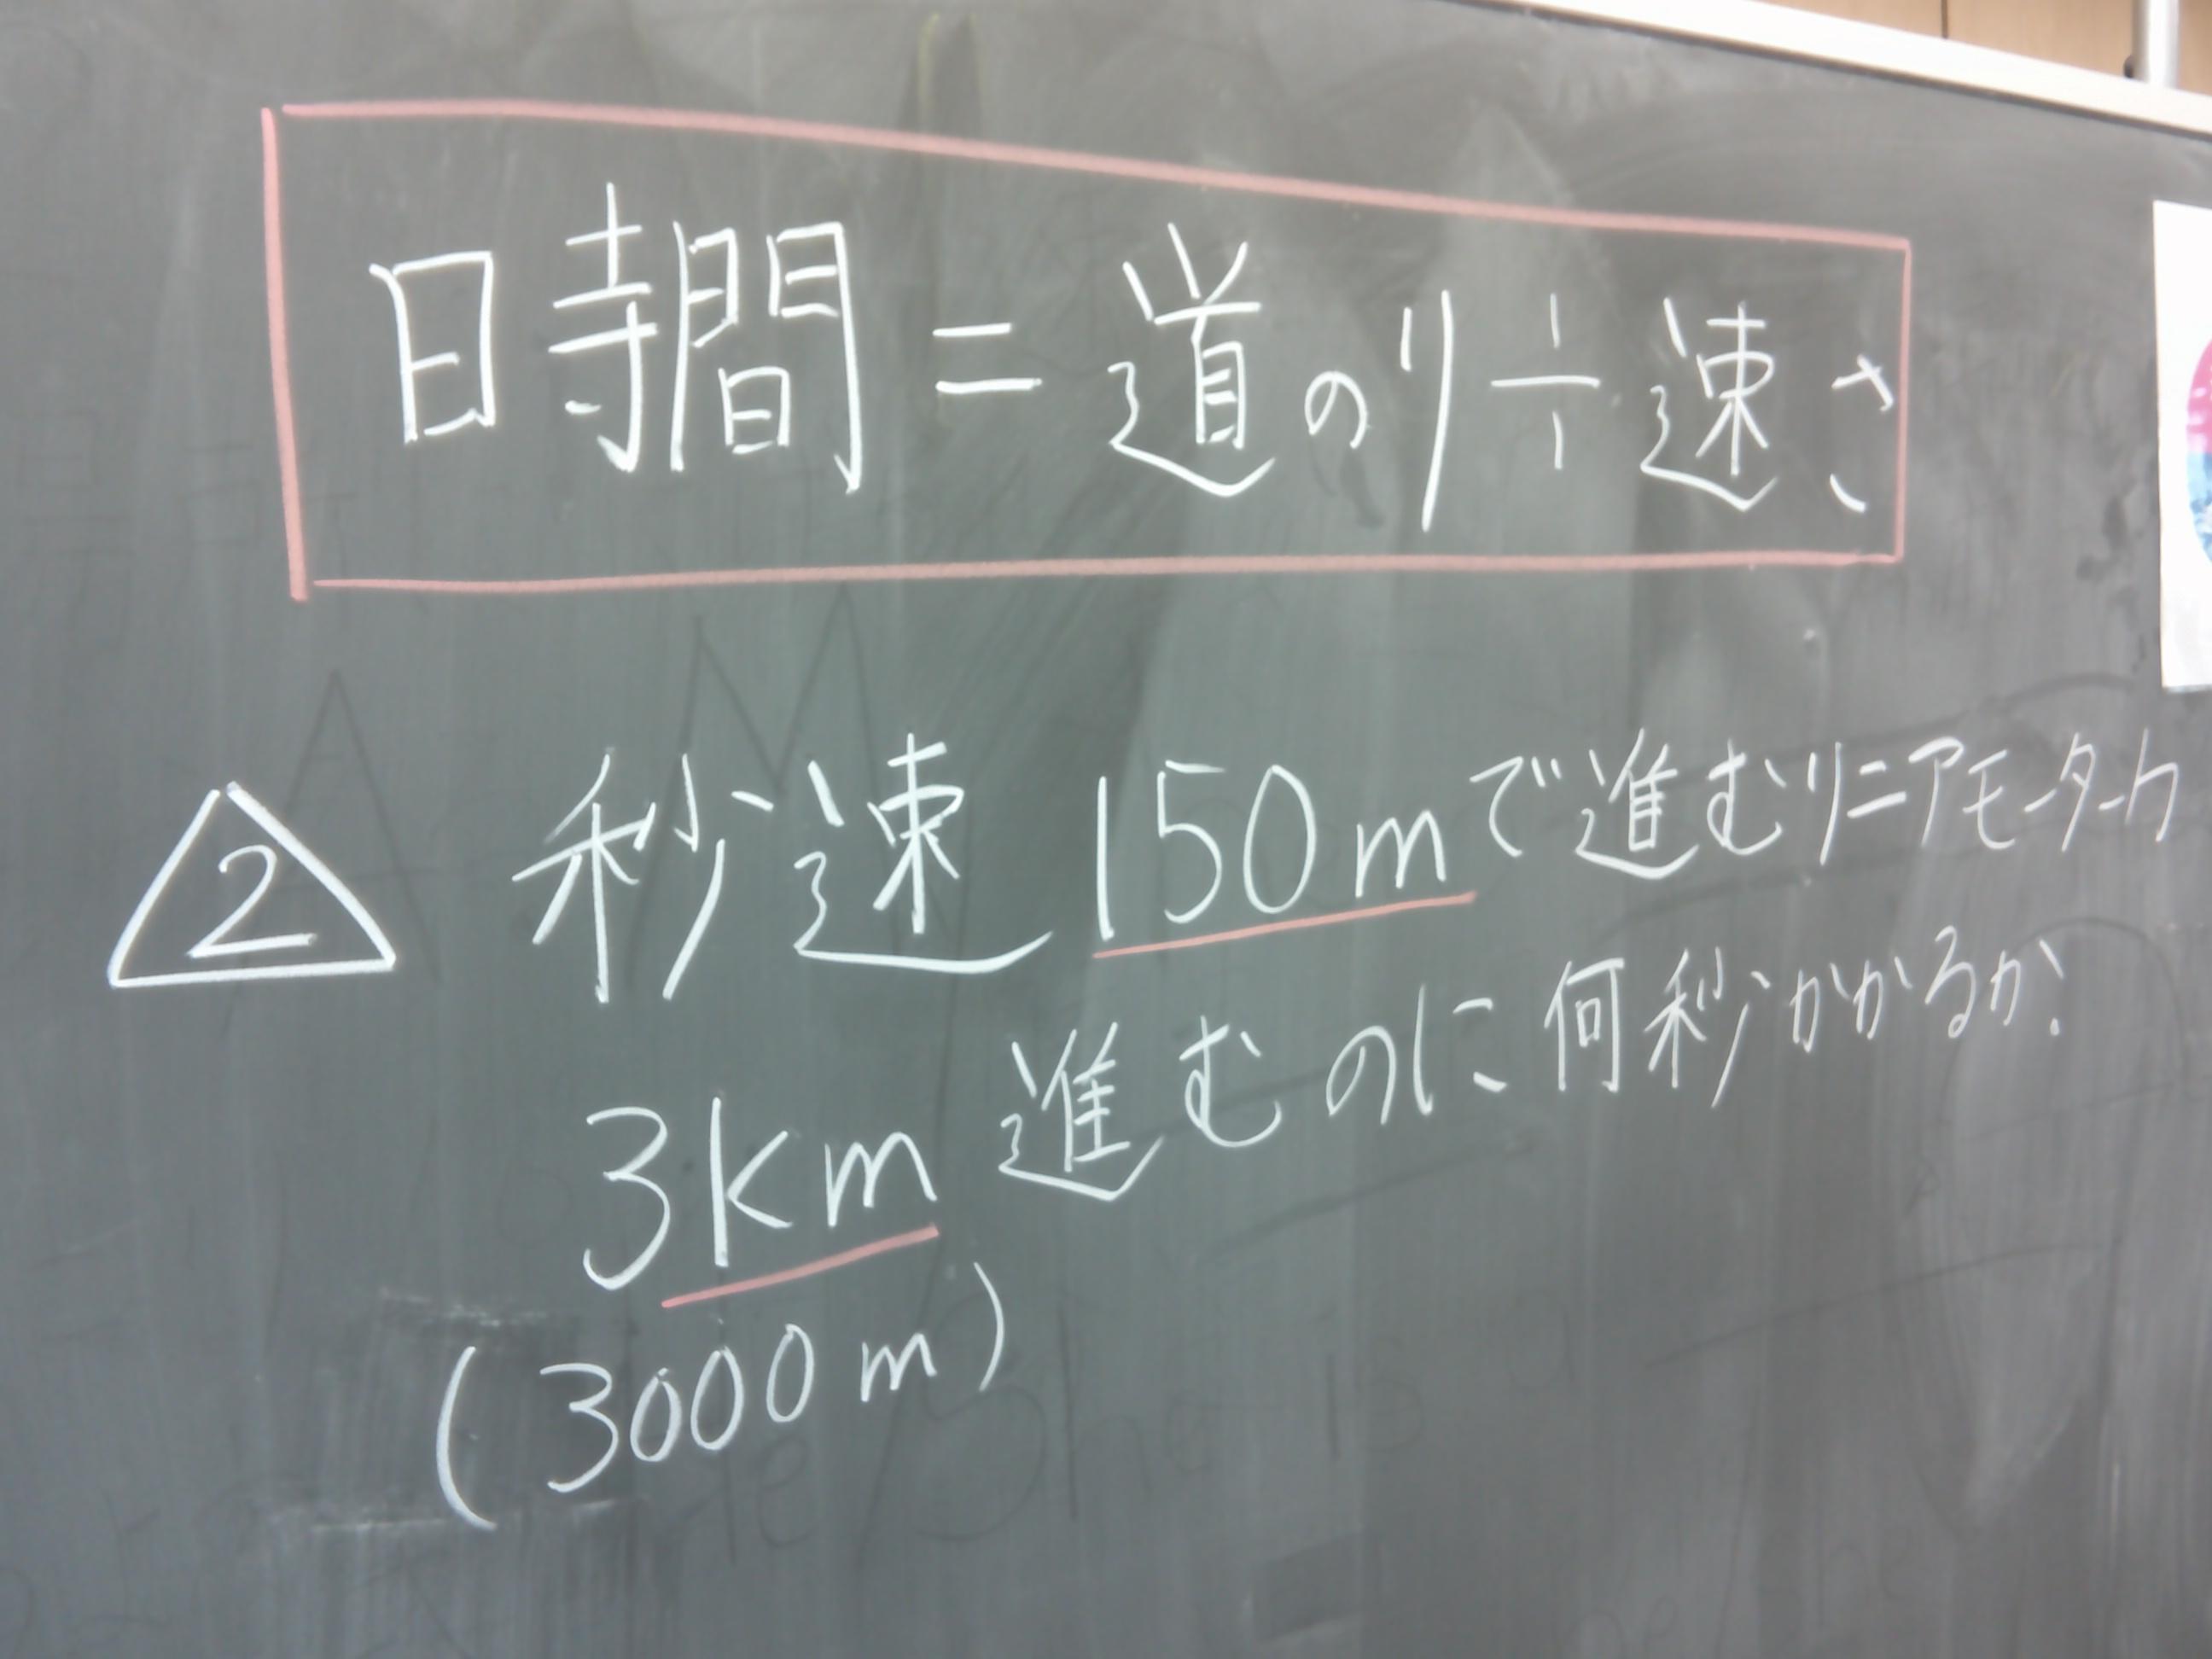 時間=道のり÷速さ
2 秒速150mで進むリニアモーターカ
3km進むのに何秒かかるか?
(3000m)